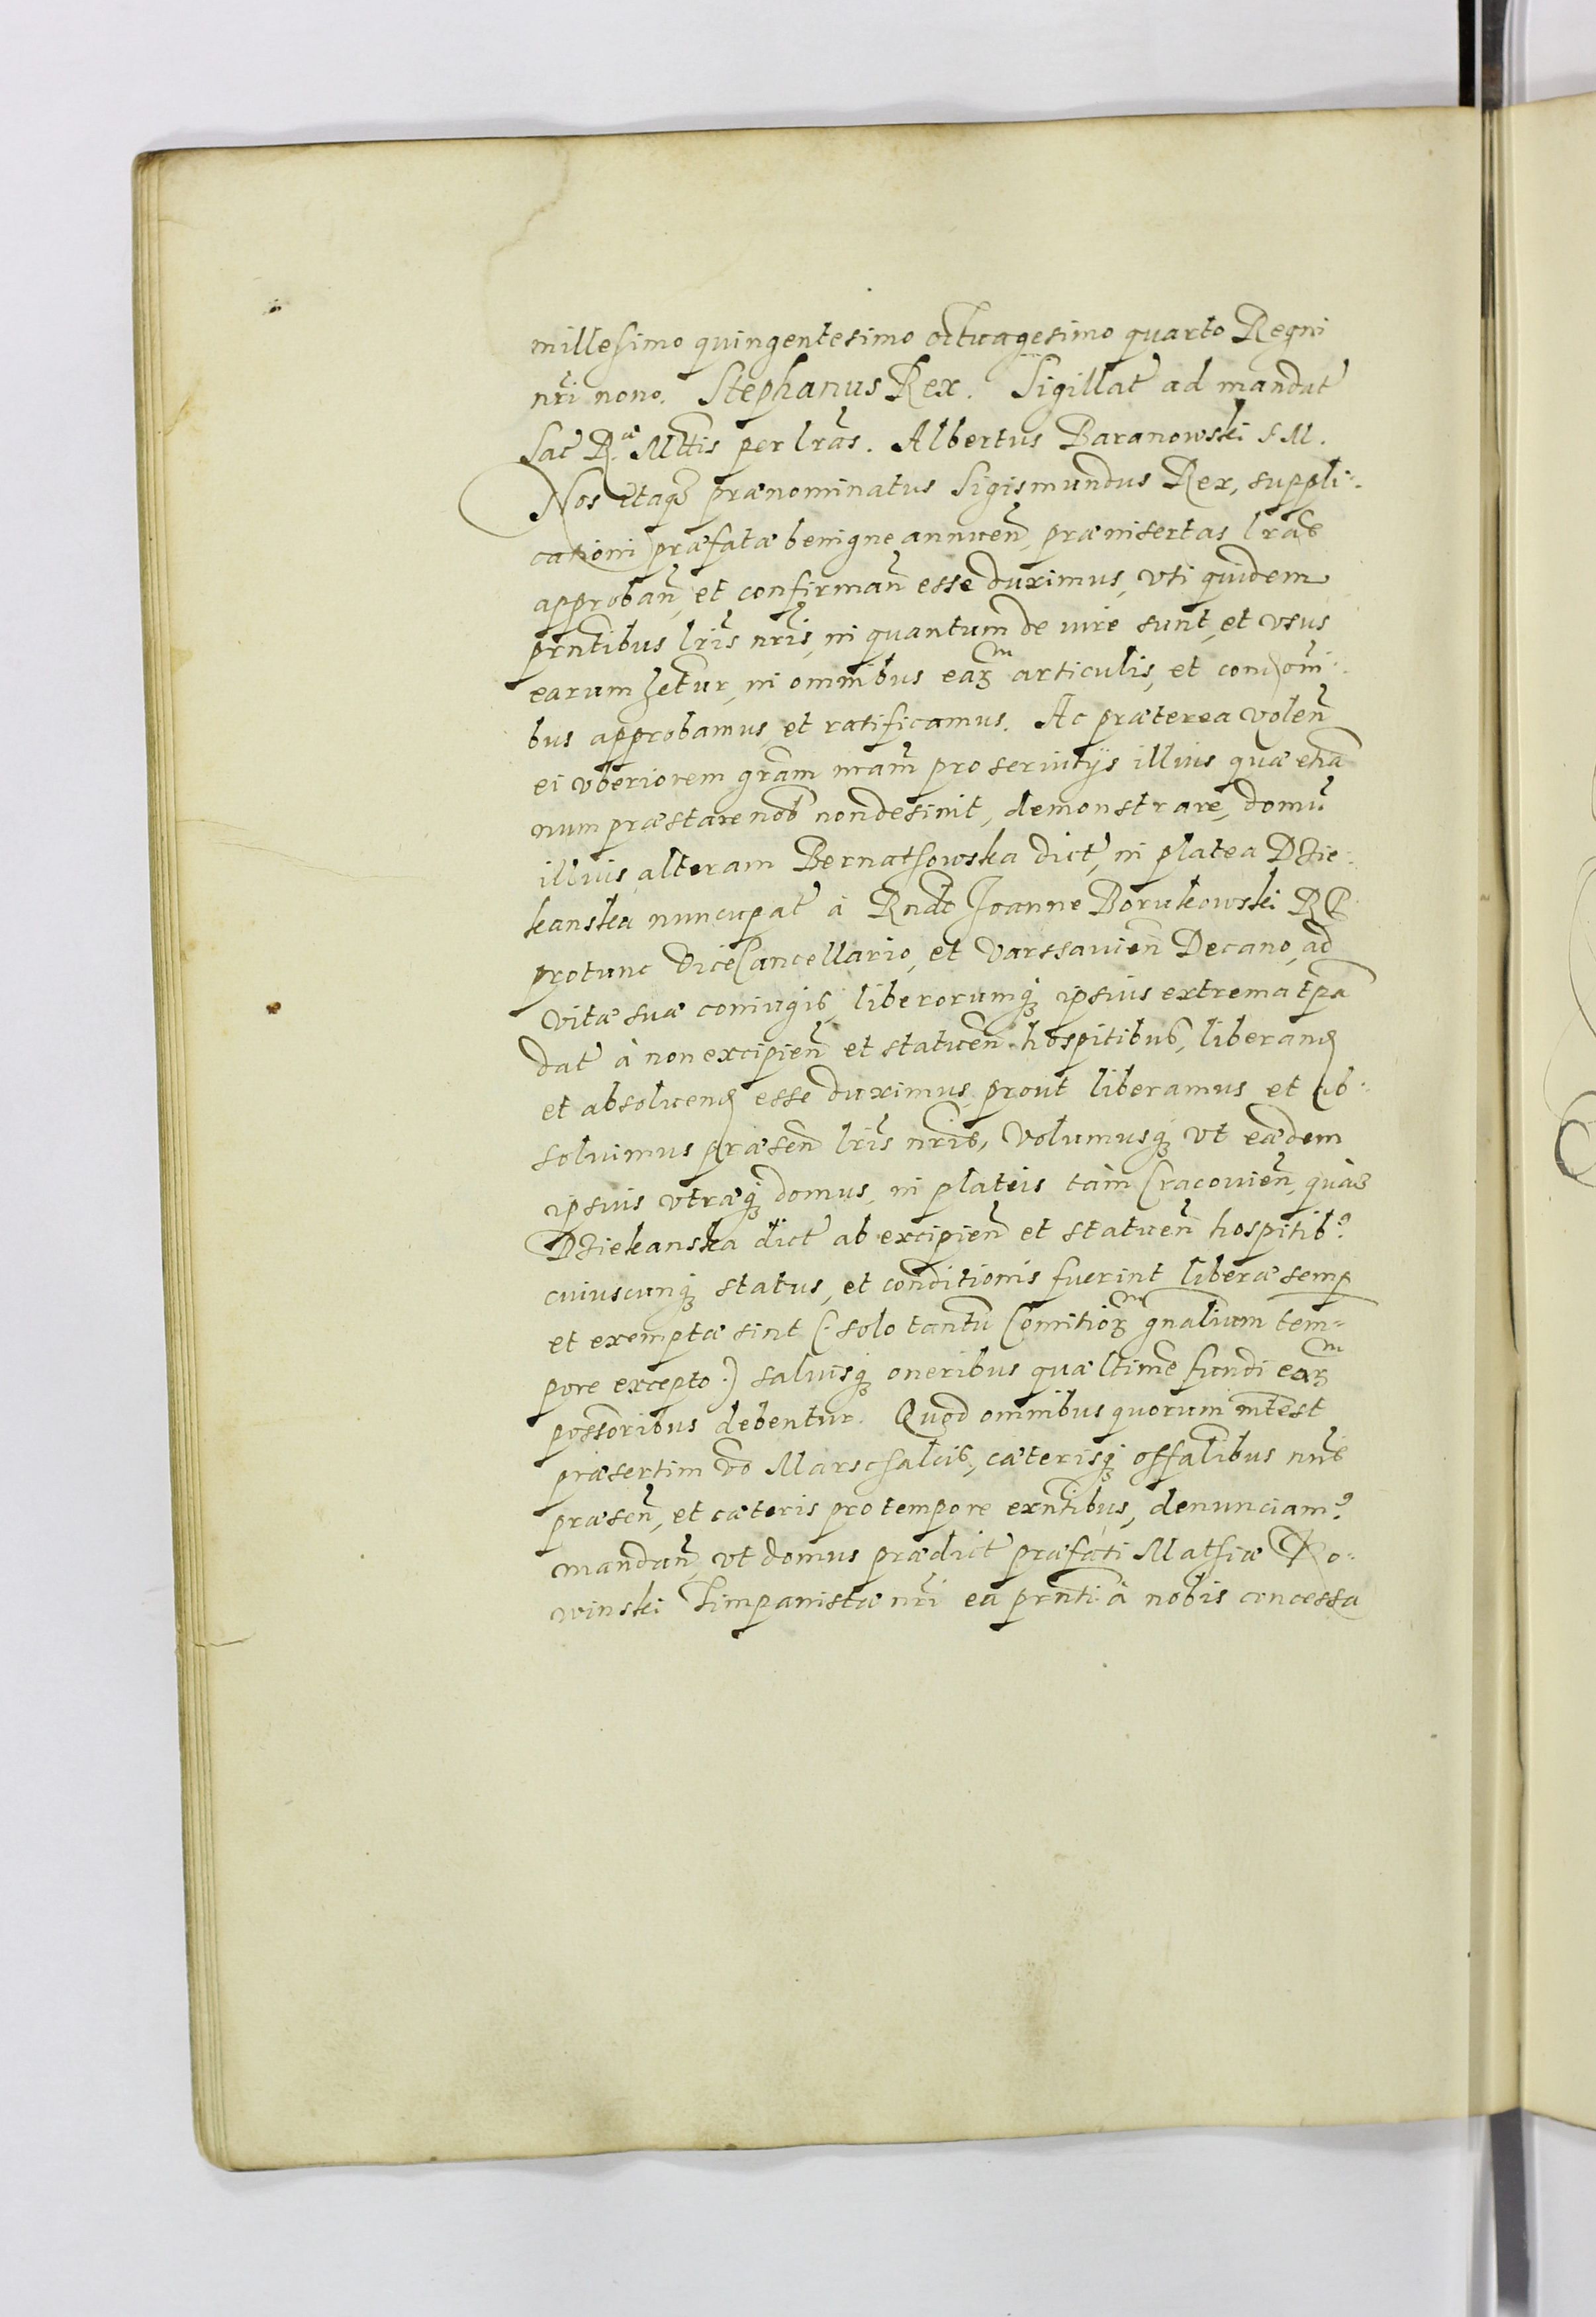 millesimo quingentesimo octuagesimo quarto Regni
nr̃i nono. Stephanus Rex. Sigillat̃ ad mandat̃
Sac̃ R.æ Mttis per lr̃as. Albertus Baranowski S M.
Nos itaq₃ prænominatus Sigismundus Rex, suppli:
cationi præfatæ benigne annuen̄, præinsertas lr̃as
approban̄, et confirman̄ esse duximus, vti quidem
pr̃ntibus lr̃is nr̃is, in quantum de iure sunt, et vsus
earum h̃etur, in omnibus eaꝝm articulis, et cond̃omi:
bus approbamus, et ratificamus. Ac præterea volen̄
ei vberiorem gr̃am nr̃am pro seruitijs illius quæ etia͂
num præstare nob̃ non desinit, demonstrare, domu͂
illius alteram Bernathowska dict̃, in platea Dzie:
kanska nuncupat̃ à Rndo Joanne Borukowski RP
protunc ViceCancellario, et Varssauien̄ Decano, ad
vitæ suæ coniugis, liberorumq₃ ipsius extrema tp̃a
dat̃ à non excipien̄ et statuen̄ hospitibus, liberand̃
et absoluend̃ esse duximus, prout liberamus et ab:
soluimus præsen̄ lr̃is nr̃is, Volumusq₃ vt eædem
ipsius vtræq₃ domus, in plateis tàm Cracouien̄, quàm
Dziekanska dict̃ ab excipien̄ et statuen̄ hospitib?
cuiuscunq₃ status, et conditionis fuerint liberæ semp̲
et exemptæ sint (: solo tantu͂ Comitioꝝm gñalium tem=
pore excepto :) saluisq₃ oneribus quæ ltime fundi eaꝝm
possõribus debentur. Quod omnibus quorum intest
præsertim vo Marschalcis, cæterisq₃ offalibus nr̃is
præsen̄, et cæteris pro tempore exñtibus, denunciam?
mandan̄, vt domus prædict̃ præfati Mathiæ Ro:
winski Timpanistæ nr̃i ea pr̃nti à nobis concessa